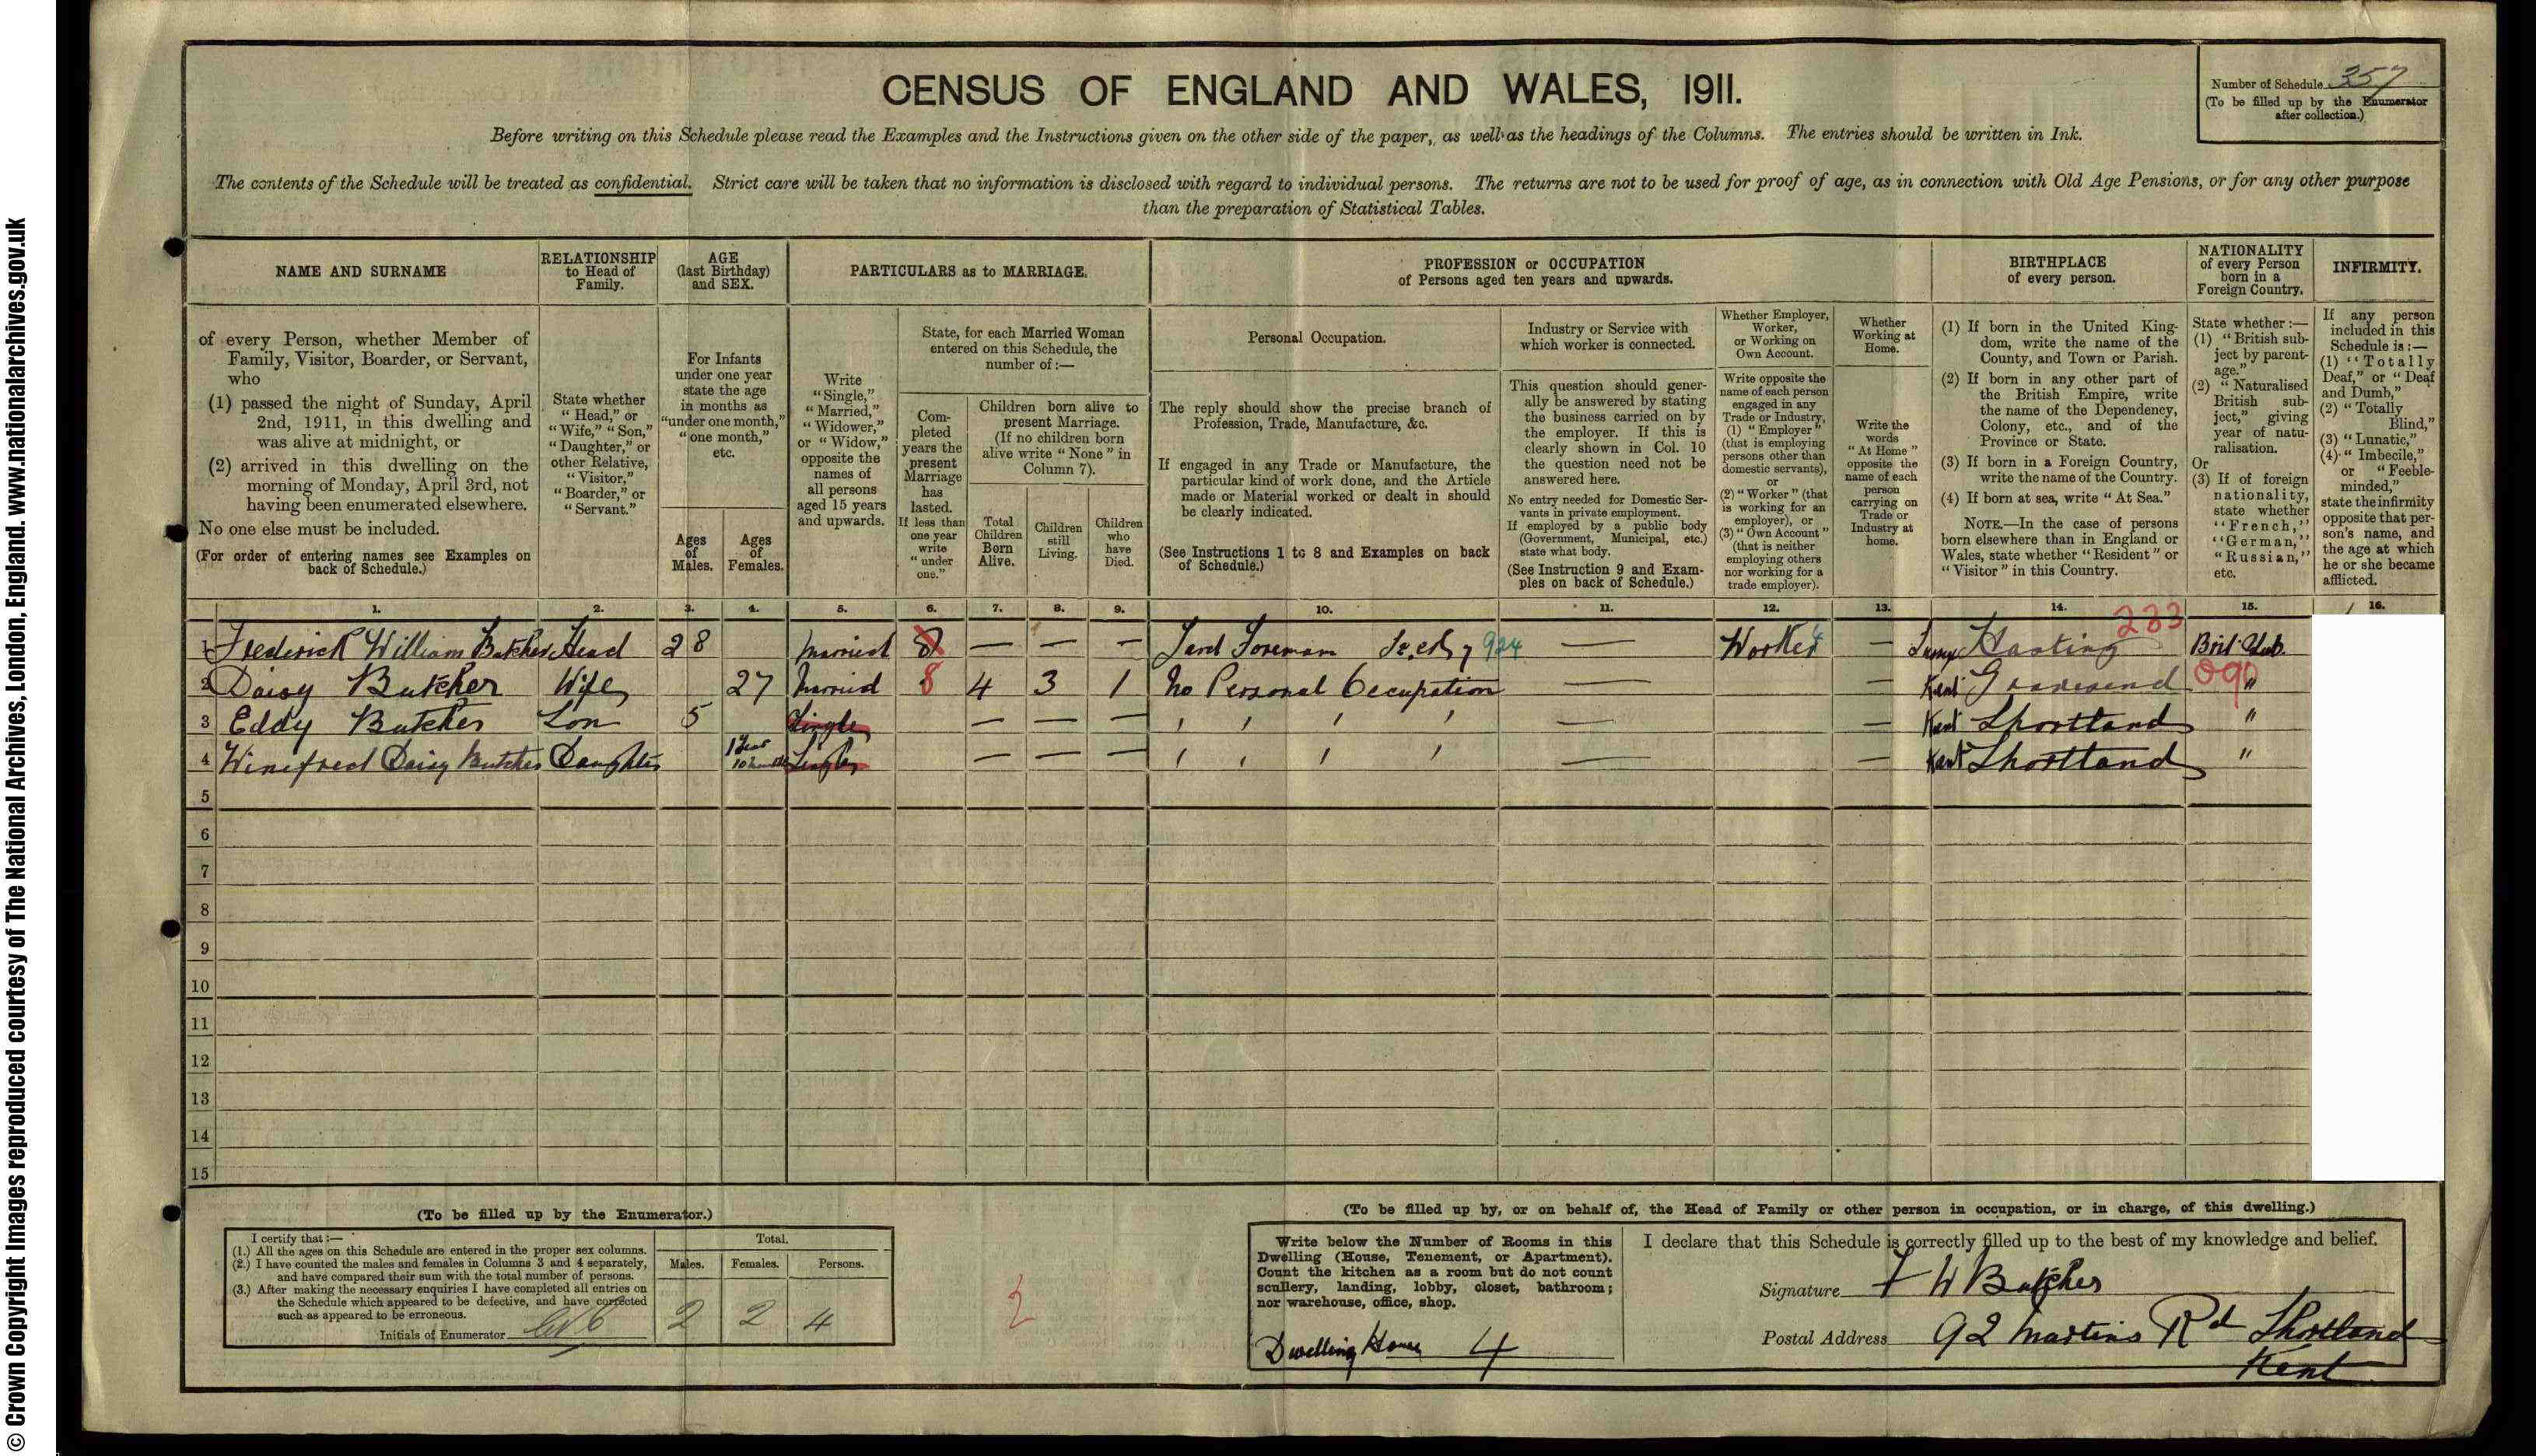 © Crown Copyright Images reproduced courtesy of The National Archives, London, England. www.nationalarchives.gov.uk
CENSUS OF ENGLAND AND WALES, 1911.
Number of Schedule 357
(To be filled up by the Enumerator
after collection.)
Before writing on this Schedule please read the Examples and the Instructions given on the other side of the paper, as well as the headings of the Columns. The entries should be written in Ink.
The contents of the Schedule will be treated as confidential. Strict care will be taken that no information is disclosed with regard to individual persons. The returns are not to be used for proof of age, as in connection with Old Age Pensions, or for any other purpose
than the preparation of Statistical Tables.
NAME AND SURNAME
of every Person, whether Member of
Family, Visitor, Boarder, or Servant,
who
(1) passed the night of Sunday, April
2nd, 1911, in this dwelling and
was alive at midnight, or
(2) arrived in this dwelling on the
morning of Monday, April 3rd, not
having been enumerated elsewhere.
No one else must be included.
(For order of entering names see Examples on
back of Schedule.)
RELATIONSHIP
to Head of
Family.
State whether
"Head," or
"Wife," "Son,"
"Daughter," or
other Relative,
"Visitor,"
"Boarder," or
"Servant."
AGE
(last Birthday)
and SEX.
For Infants
under one year
state the age
in months as
"under one month,"
"one month,"
etc.
Ages
of
Males.
Ages
of
Females.
PARTICULARS as to MARRIAGE.
Write
"Single,"
"Married,"
"Widower,"
or "Widow,"
opposite the
names of
all persons
aged 15 years
and upwards.
State, for each Married Woman
entered on this Schedule, the
number of:—
Com-
pleted
years the
present
Marriage
has
lasted.
If less than
one year
write
"under
one."
Children born alive to
present Marriage.
(If no children born
alive write "None" in
Column 7).
Total
Children
Born
Alive.
Children
still
Living.
Children
who
have
Died.
PROFESSION or OCCUPATION
of Persons aged ten years and upwards.
Personal Occupation.
The reply should show the precise branch of
Profession, Trade, Manufacture, &c.
If engaged in any Trade or Manufacture, the
particular kind of work done, and the Article
made or Material worked or dealt in should
be clearly indicated.
(See Instructions 1 to 8 and Examples on back
of Schedule.)
Industry or Service with
which worker is connected.
This question should gener-
ally be answered by stating
the business carried on by
the employer. If this is
clearly shown in Col. 10
the question need not be
answered here.
No entry needed for Domestic Ser-
vants in private employment.
If employed by a public body
(Government, Municipal, etc.)
state what body.
(See Instruction 9 and Exam-
ples on back of Schedule.)
Whether Employer,
Worker,
or Working on
Own Account.
Write opposite the
name of each person
engaged in any
Trade or Industry,
(1) "Employer"
(that is employing
persons other than
domestic servants),
or
(2) "Worker" (that
is working for an
employer), or
(3) "Own Account"
(that is neither
employing others
nor working for a
trade employer).
Whether
Working at
Home.
Write the
words
"At Home"
opposite the
name of each
person
carrying on
Trade or
Industry at
home.
BIRTHPLACE
of every person.
(1) If born in the United King-
dom, write the name of the
County, and Town or Parish.
(2) If born in any other part of
the British Empire, write
the name of the Dependency,
Colony, etc., and of the
Province or State.
(3) If born in a Foreign Country,
write the name of the Country.
(4) If born at sea, write "At Sea."
NOTE.—In the case of persons
born elsewhere than in England or
Wales, state whether "Resident" or
"Visitor" in this Country.
NATIONALITY
of every Person
born in a
Foreign Country.
State whether:—
(1) "British sub-
ject by parent-
age."
(2) "Naturalised
British sub-
ject," giving
year of natu-
ralisation.
Or
(3) If of foreign
nationality,
state whether
"French,"
"German,"
"Russian,"
etc.
INFIRMITY.
If any person
included in this
Schedule is:—
(1) "Totally
Deaf," or "Deaf
and Dumb,"
(2) "Totally
Blind,"
(3) "Lunatic,"
(4) "Imbecile,"
or "Feeble-
minded,"
state the infirmity
opposite that per-
son's name, and
the age at which
he or she became
afflicted.
1. 2. 3. 4. 5. 6. 7. 8. 9. 10. 11. 12. 13. 14. 15. 16.
233
1 Frederick William Butcher Head 28 Married 8 — — — Foreman 924 — Worker — Hasting Brit Sub.
2 Daisy Butcher Wife 27 Married 8 4 3 1 No Personal Occupation — — Kent Gravesend 090 "
3 Eddy Butcher Son 5 Single — — — " " " " — — Kent Shortland "
4 Winifred Daisy Butcher Daughter 1 Year 10 months Single — — — " " " " — — Kent Shortland "
5
6
7
8
9
10
11
12
13
14
15
(To be filled up by the Enumerator.)
I certify that:—
(1.) All the ages on this Schedule are entered in the proper sex columns.
(2.) I have counted the males and females in Columns 3 and 4 separately,
and have compared their sum with the total number of persons.
(3.) After making the necessary enquiries I have completed all entries on
the Schedule which appeared to be defective, and have corrected
such as appeared to be erroneous.
Initials of Enumerator
Total.
Males. Females. Persons.
2 2 4
2
(To be filled up by, or on behalf of, the Head of Family or other person in occupation, or in charge, of this dwelling.)
Write below the Number of Rooms in this
Dwelling (House, Tenement, or Apartment).
Count the kitchen as a room but do not count
scullery, landing, lobby, closet, bathroom;
nor warehouse, office, shop.
Dwelling House 4
I declare that this Schedule is correctly filled up to the best of my knowledge and belief.
Signature F W Butcher
Postal Address 92 Martins Rd Shortland
Kent